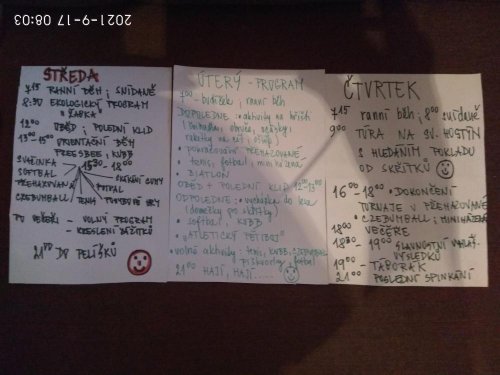 2021-9-17 08:03
STŘEDA
715 RANNÍ BĚH; SNÍDANĚ
8:30 EKOLOGICKÝ PROGRAM
"ŽABKA"
12:00 OBĚD; POLEDNÍ KLID
13:00-15:00 ORIENTAČNÍ BĚH
FREESBEE, KUBB
SVAČINKA 15:30-18:00
SOFTBAL SKÁKÁNÍ GUMY
PŘEHAZOVANÁ FOTBAL
CZEBUMBALL TENIS POHYBOVÉ HRY
PO VEČEŘI - VOLNÝ PROGRAM
- KRESLENÍ ZÁŽITKŮ
21:00 DO PELÍŠKŮ
ÚTERÝ - PROGRAM
7:00 - budíček, ranní běh
DOPOLEDNE: aktivity na hřišti
• pokračování PŘEHAZOVANÉ
• tenis, fotbal, miniházená
• BIATLON
OBĚD + POLEDNÍ KLID 12:00-13:00
ODPOLEDNE: vycházka do lesa
(domečky pro skřítky)
• softbal, KUBB
• "ATLETICKÝ PĚTIBOJ"
• volné aktivity: tenis, KUBB, CZEBUMBALL
piškvorky, fotbal
21:00 HAJÍ, HAJÍ.....
ČTVRTEK
7:15 ranní běh; 8:00 snídaně
9:00 TÚRA NA SV. HOSTÝN
S HLEDÁNÍM POKLADU
OD SKŘÍTKŮ
16:00-18:00 • DOKONČENÍ
TURNAJE V PŘEHAZOVANÉ
• CZEBUMBALL; MINIHÁZENÁ
18:00 VEČEŘE
18:30 - 19:00 SLAVNOSTNÍ VYHLÁŠ.
VÝSLEDKŮ
19:00 - TÁBORÁK
21:00 POSLEDNÍ SPINKÁNÍ